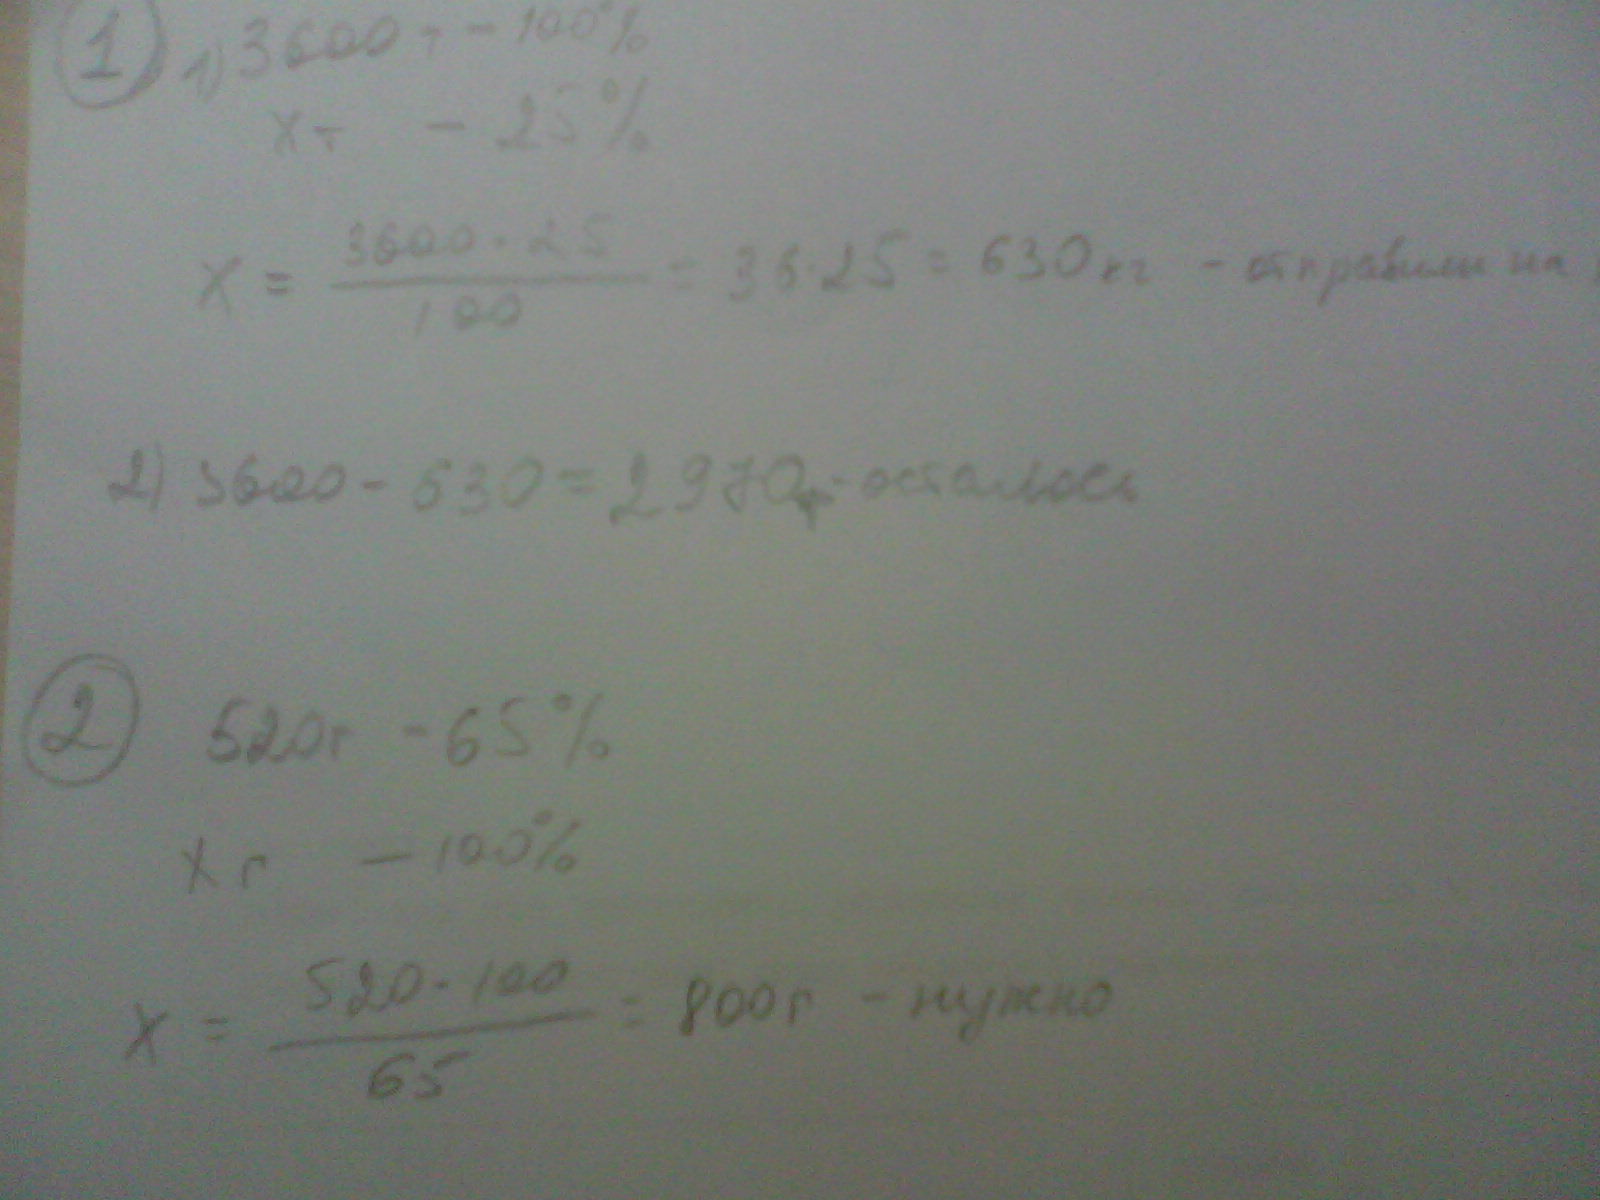 1 1) 3600 т - 100%
x т - 25%
x = 3600 · 25 / 100 = 36 · 25 = 630 кг - отправили на
2) 3600 - 630 = 2970 т - осталось
2 520 г - 65%
x г - 100%
x = 520 · 100 / 65 = 800 г - нужно